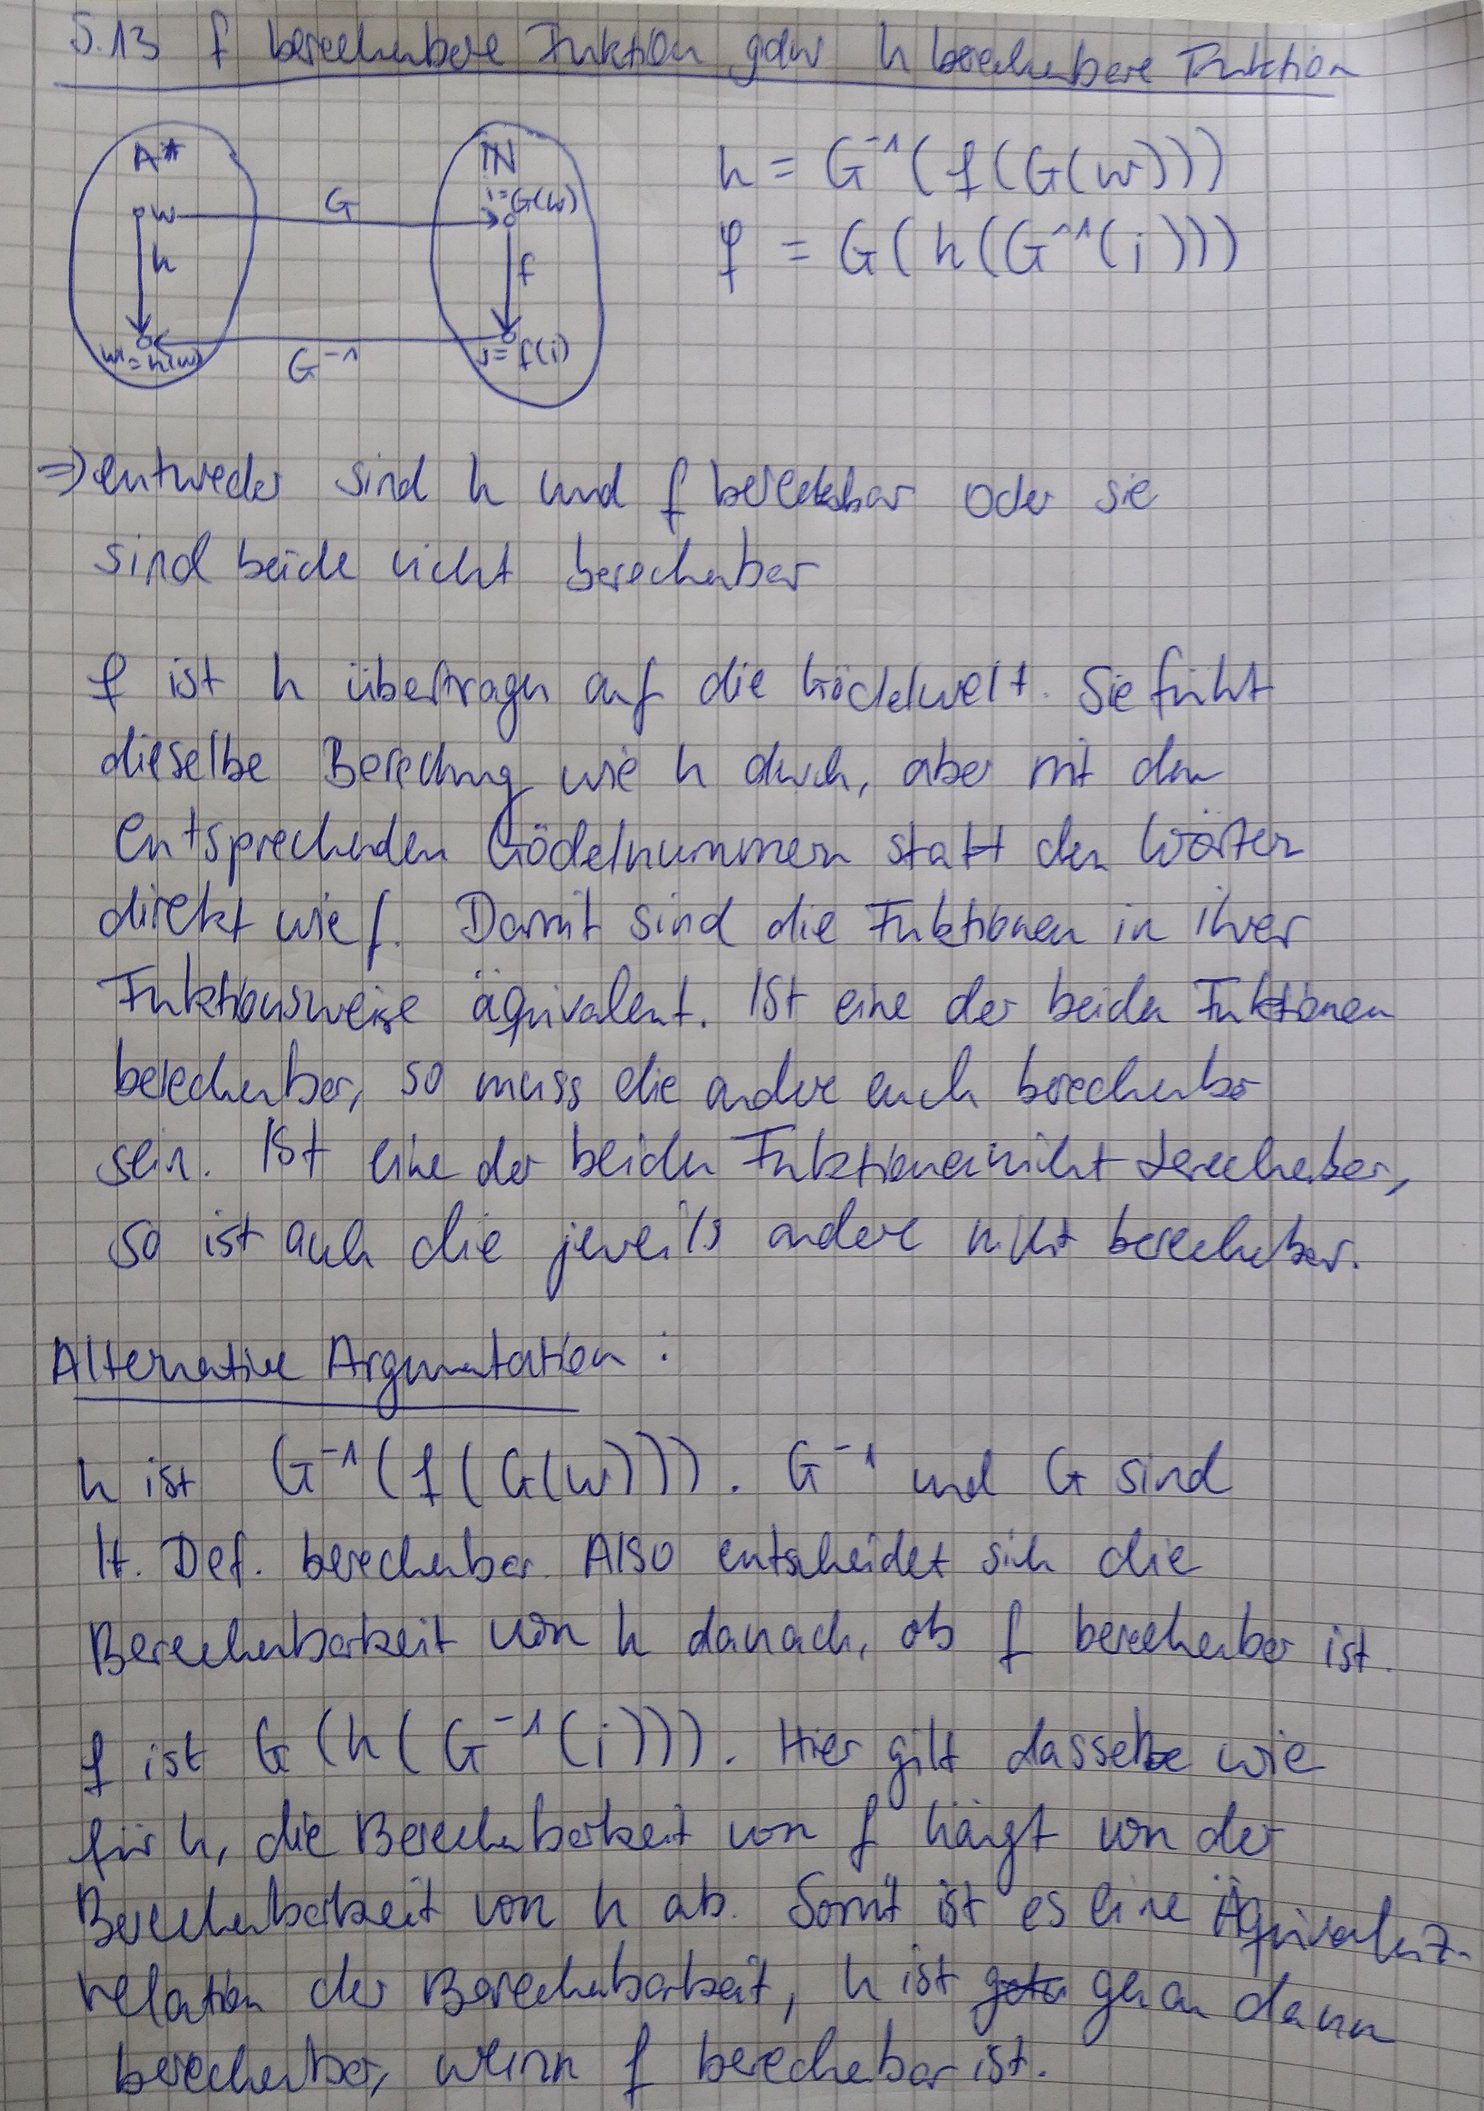 5.13 f berechenbare Funktion gdw h berechenbare Funktion
A*
IN
h = G⁻¹(f(G(w)))
w
G
i=G(w)
h
f
f = G(h(G⁻¹(i)))
w'=h(w)
G⁻¹
j=f(i)
⇒ entweder sind h und f berechenbar oder sie
sind beide nicht berechenbar
f ist h übertragen auf die Gödelwelt. Sie führt
dieselbe Berechnung wie h durch, aber mit den
entsprechenden Gödelnummern statt den Wörtern
direkt wie f. Damit sind die Funktionen in ihrer
Funktionsweise äquivalent. Ist eine der beiden Funktionen
berechenbar, so muss die andere auch berechenbar
sein. Ist eine der beiden Funktionen nicht berechenbar,
so ist auch die jeweils andere nicht berechenbar.
Alternative Argumentation:
h ist G⁻¹(f(G(w))). G⁻¹ und G sind
lt. Def. berechenbar. Also entscheidet sich die
Berechenbarkeit von h danach, ob f berechenbar ist.
f ist G(h(G⁻¹(i))). Hier gilt dasselbe wie
für h, die Berechenbarkeit von f hängt von der
Berechenbarkeit von h ab. Somit ist es eine Äquivalenz-
relation der Berechenbarkeit, h ist genau dann
berechenbar, wenn f berechenbar ist.